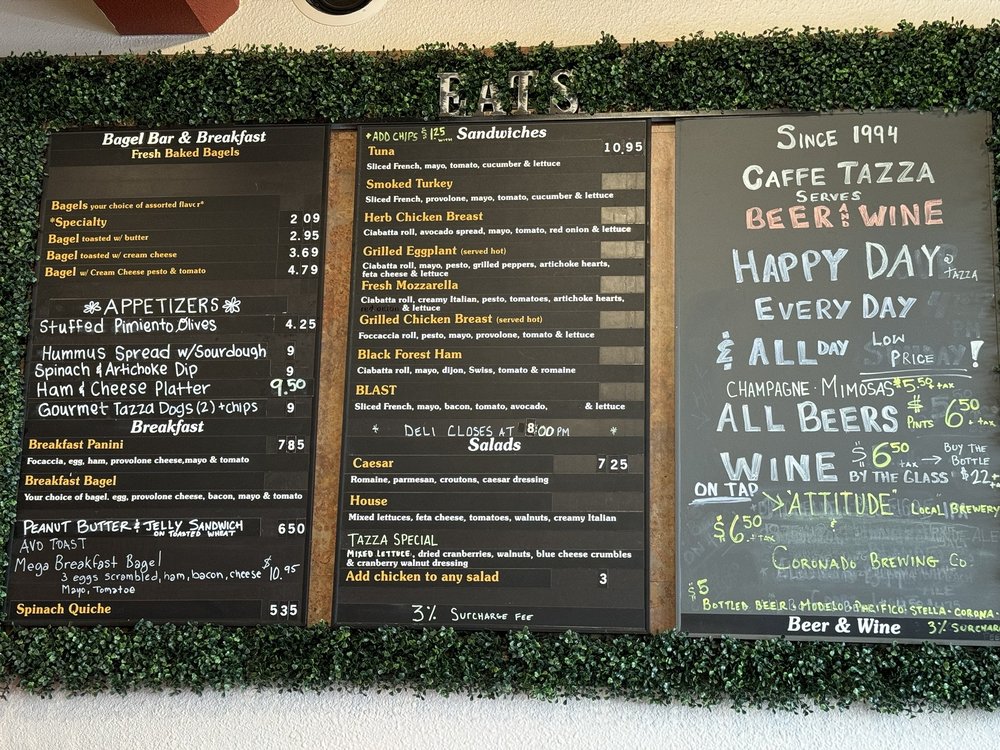 EATS
Bagel Bar & Breakfast
Fresh Baked Bagels
Bagels your choice of assorted flavor*
*Specialty 2 09
Bagel toasted w/ butter 2.95
Bagel toasted w/ cream cheese 3.69
Bagel w/ Cream Cheese pesto & tomato 4.79
APPETIZERS
Stuffed Pimiento Olives 4.25
Hummus Spread w/Sourdough 9
Spinach & Artichoke Dip 9
Ham & Cheese Platter 9.50
Gourmet Tazza Dogs (2) + chips 9
Breakfast
Breakfast Panini 785
Focaccia, egg, ham, provolone cheese,mayo & tomato
Breakfast Bagel
Your choice of bagel. egg, provolone cheese, bacon, mayo & tomato
PEANUT BUTTER & JELLY SANDWICH 650
ON TOASTED WHEAT
AVO TOAST
Mega Breakfast Bagel $10.95
3 eggs scrambled, ham, bacon, cheese
Mayo, Tomatoe
Spinach Quiche 535
+ADD CHIPS $125 Sandwiches
Tuna 10,95
Sliced French, mayo, tomato, cucumber & lettuce
Smoked Turkey
Sliced French, provolone, mayo, tomato, cucumber & lettuce
Herb Chicken Breast
Ciabatta roll, avocado spread, mayo, tomato, red onion & lettuce
Grilled Eggplant (served hot)
Ciabatta roll, mayo, pesto, grilled peppers, artichoke hearts,
feta cheese & lettuce
Fresh Mozzarella
Ciabatta roll, creamy Italian, pesto, tomatoes, artichoke hearts,
& lettuce
Grilled Chicken Breast (served hot)
Foccaccia roll, pesto, mayo, provolone, tomato & lettuce
Black Forest Ham
Ciabatta roll, mayo, dijon, Swiss, tomato & romaine
BLAST
Sliced French, mayo, bacon, tomato, avocado, & lettuce
* DELI CLOSES AT 8:00 PM *
Salads
Caesar 7 25
Romaine, parmesan, croutons, caesar dressing
House
Mixed lettuces, feta cheese, tomatoes, walnuts, creamy Italian
TAZZA SPECIAL
MIXED LETTUCE, dried cranberries, walnuts, blue cheese crumbles
& cranberry walnut dressing
Add chicken to any salad 3
3% SURCHARGE FEE
SINCE 1994
CAFFE TAZZA
SERVES
BEER AND WINE
HAPPY DAY @ TAZZA
EVERY DAY
& ALL DAY LOW PRICE!
CHAMPAGNE · MIMOSAS $5.50 + tax
ALL BEERS $ PINTS 6.50 + tax
WINE $6.50 + tax → BUY THE BOTTLE
BY THE GLASS $22 +
ON TAP >"ATTITUDE" LOCAL BREWERY
$6.50 &
CORONADO BREWING CO.
$5
BOTTLED BEER · MODELO · PACIFICO · STELLA · CORONA
Beer & Wine 3% SURCHAR